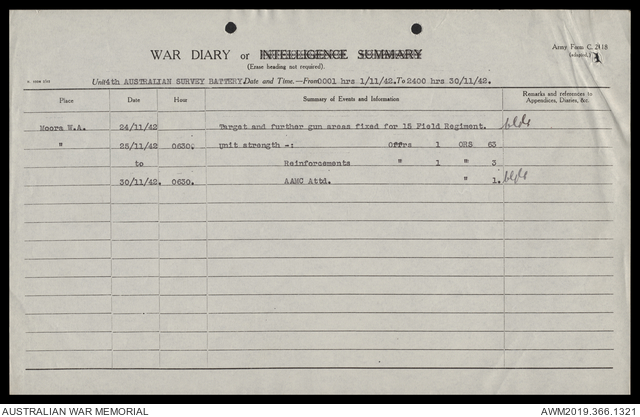 Army Form C. 2118
(adapted.)
WAR DIARY or INTELLIGENCE SUMMARY
(Erase heading not required).
Unit 4th AUSTRALIAN SURVEY BATTERY. Date and Time.—From 0001 hrs 1/11/42. To 2400 hrs 30/11/42.
Place Date Hour Summary of Events and Information Remarks and references to Appendices, Diaries, &c.
Moora W.A. 24/11/42 Target and further gun areas fixed for 15 Field Regiment.
" 25/11/42 0630. unit strength -: Offrs 1 ORS 63
to Reinforcements " 1 " 3
30/11/42. 0630. AAMC Attd. " 1.
AUSTRALIAN WAR MEMORIAL AWM2019.366.1321